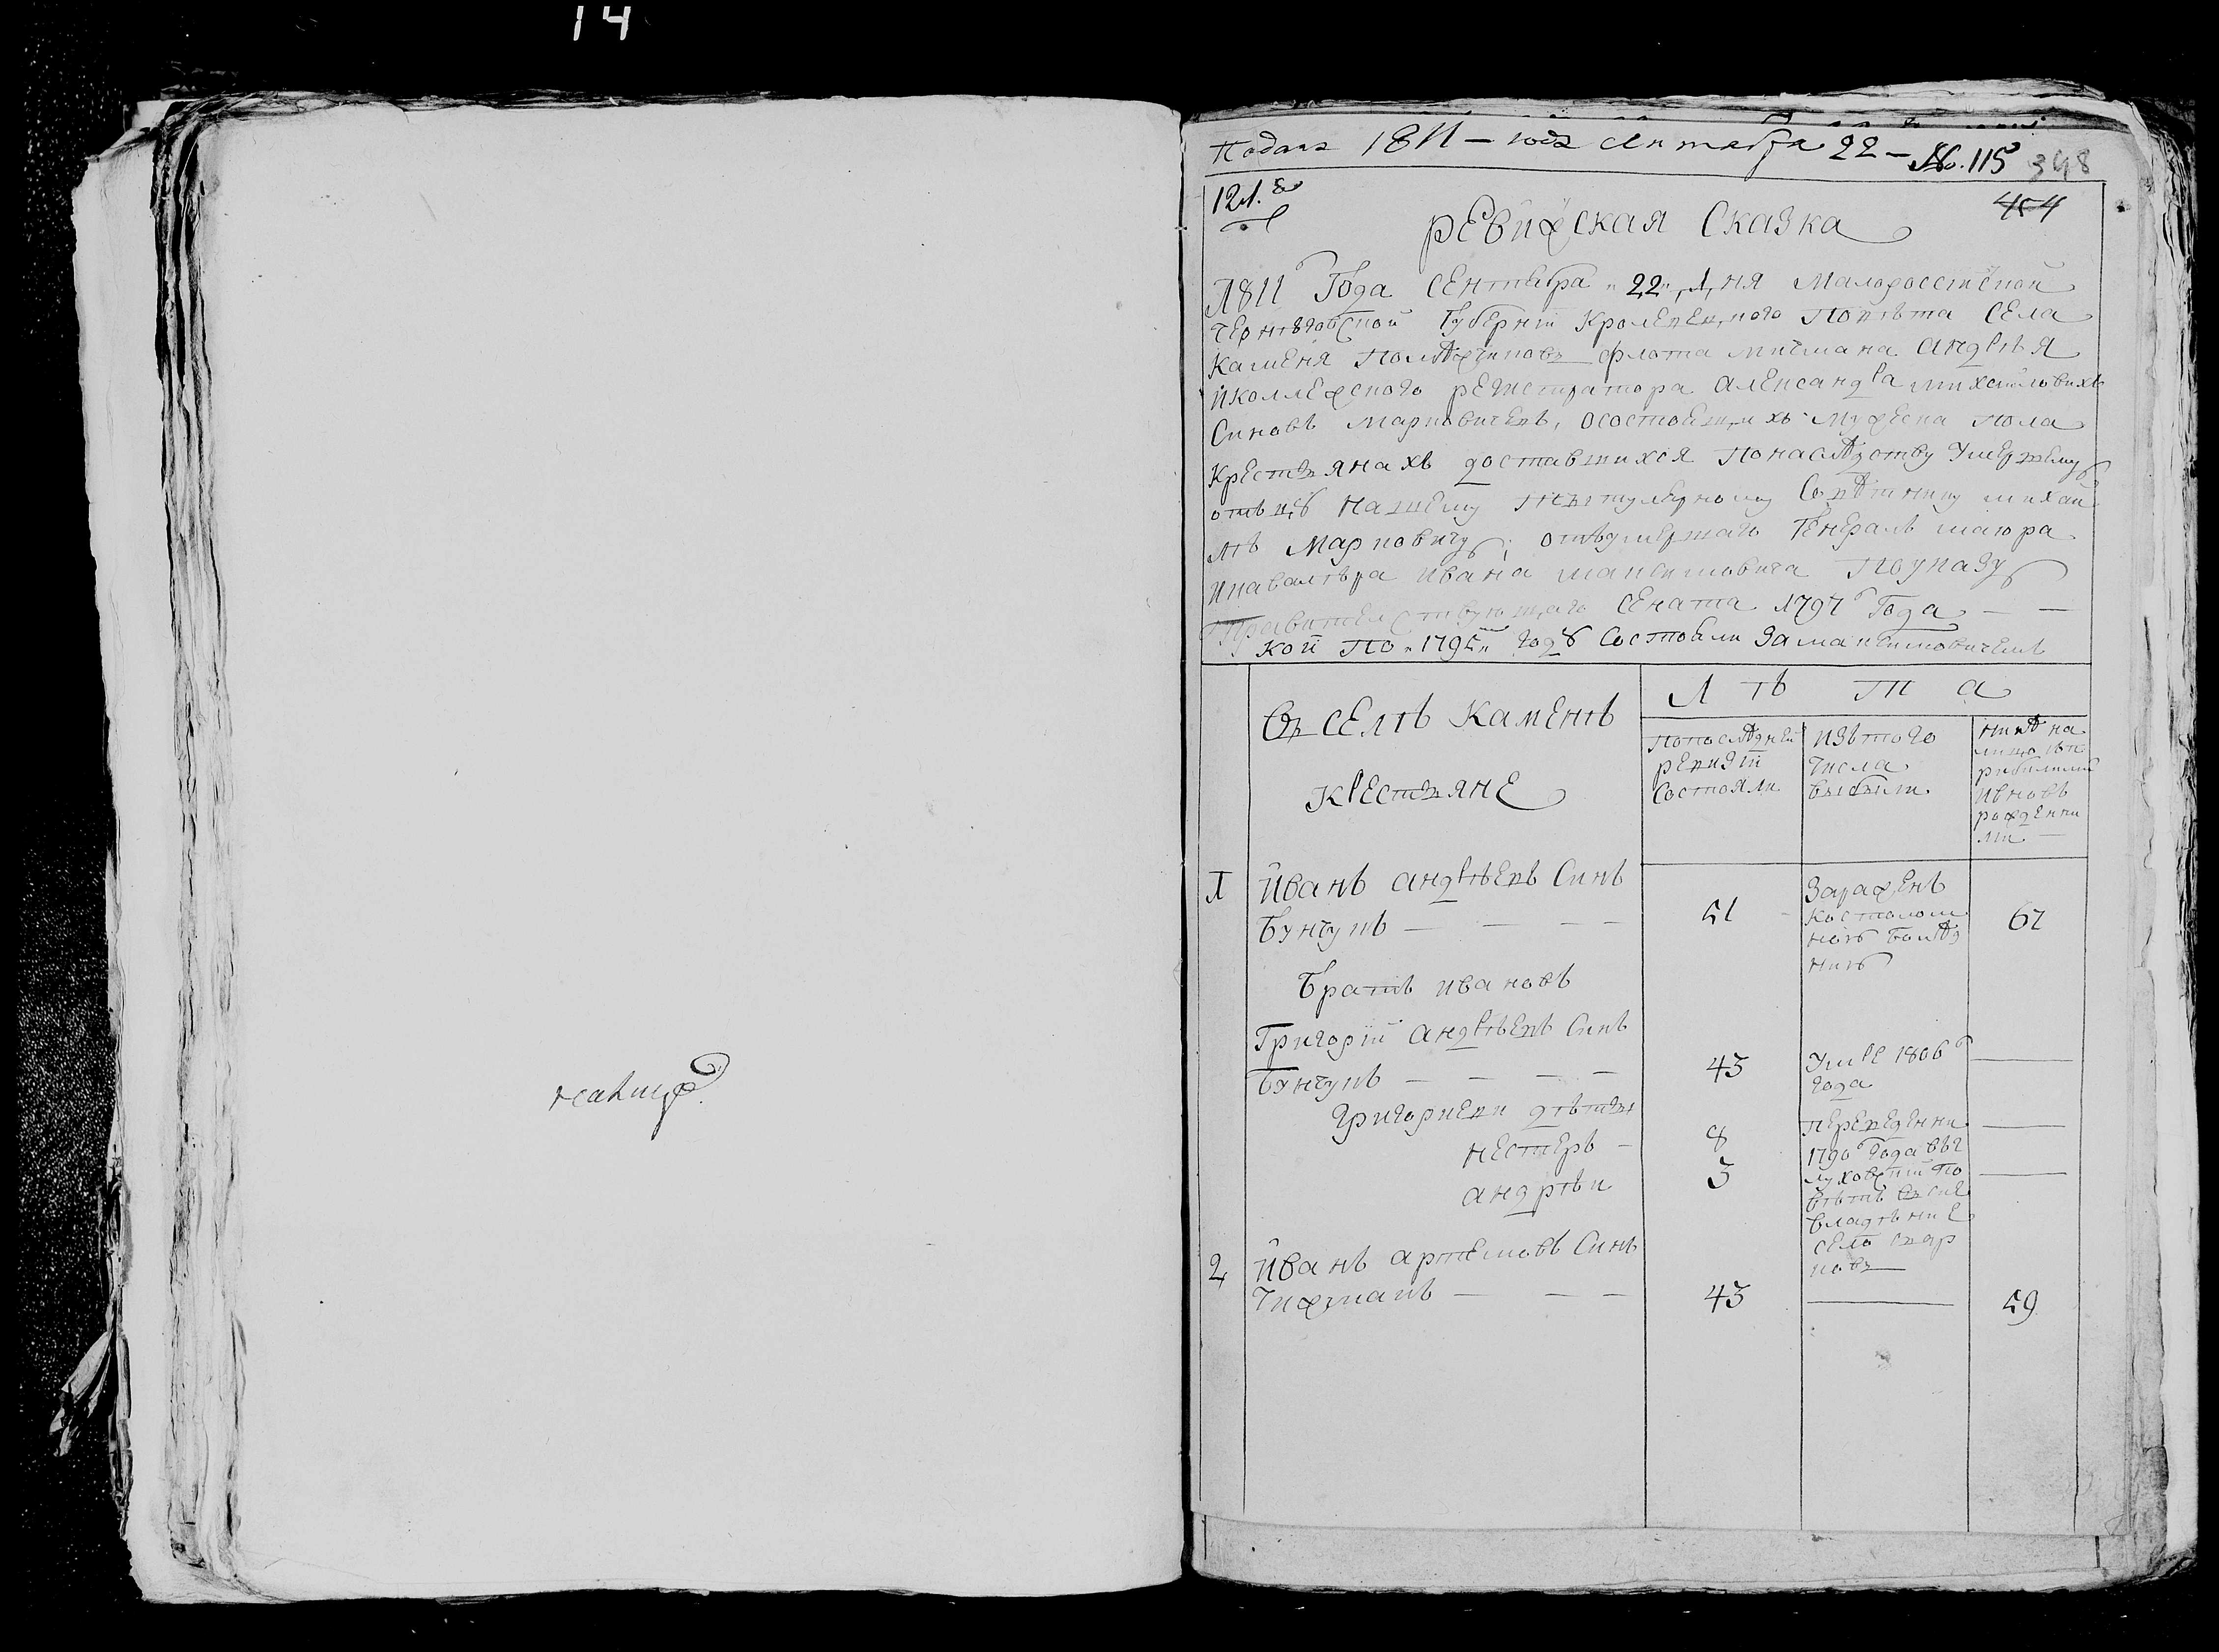 14
Подана 1811 — года сентября 22 — № 115 398
121.
454
РЕВИЖСКАЯ СКАЗКА
1811го Года Сентября „22„ Дня Малороссийской
Черниговской Губернии Кролевецкого Повѣта Села
Каменя Помѣщиковъ флота мичмана Андрѣя
И коллежского регистратора Александра Михайловихъ
Синовъ Марковичевъ, о состоящихъ мужеска пола
Крестьянахъ доставшихся по наслѣдству Умершему
отьцу нашему титулярному Совѣтнику Михай
лѣ Марковичу; отъ умершаго Генералъ маиора
И кавалѣра Ивана Максимовича по указу
Правителствующаго Сената 1797го Года — —
кои по „1795„ году Состояли за Максимовичемъ
Въ селѣ Каменѣ
Крестьяне
Л ѣ т а
По послѣдней
ревизіи
Состояли
Изъ того
числа
выбыли
Нинѣ на
лицо съ п
рибилими
И вновь
рожденни
ми —
1 Иванъ Андрѣевъ Синъ
Бунчукъ — — — — 51 67
Зараженъ
костолом
ною болѣз
нию
Братъ Ивановъ
Григорій Андрѣевъ Синъ
Бунчукъ — — — — 43 Умре 1806го
Года —
Григориеви дѣти
Нестеръ — 8 —
Андрѣи 3 —
Переведенни
1790го Года въ г
луховскій по
вѣтъ въ сие
владѣние
село
2 Иванъ Артемовъ Синъ
Чижмакъ — — — 43 — 59